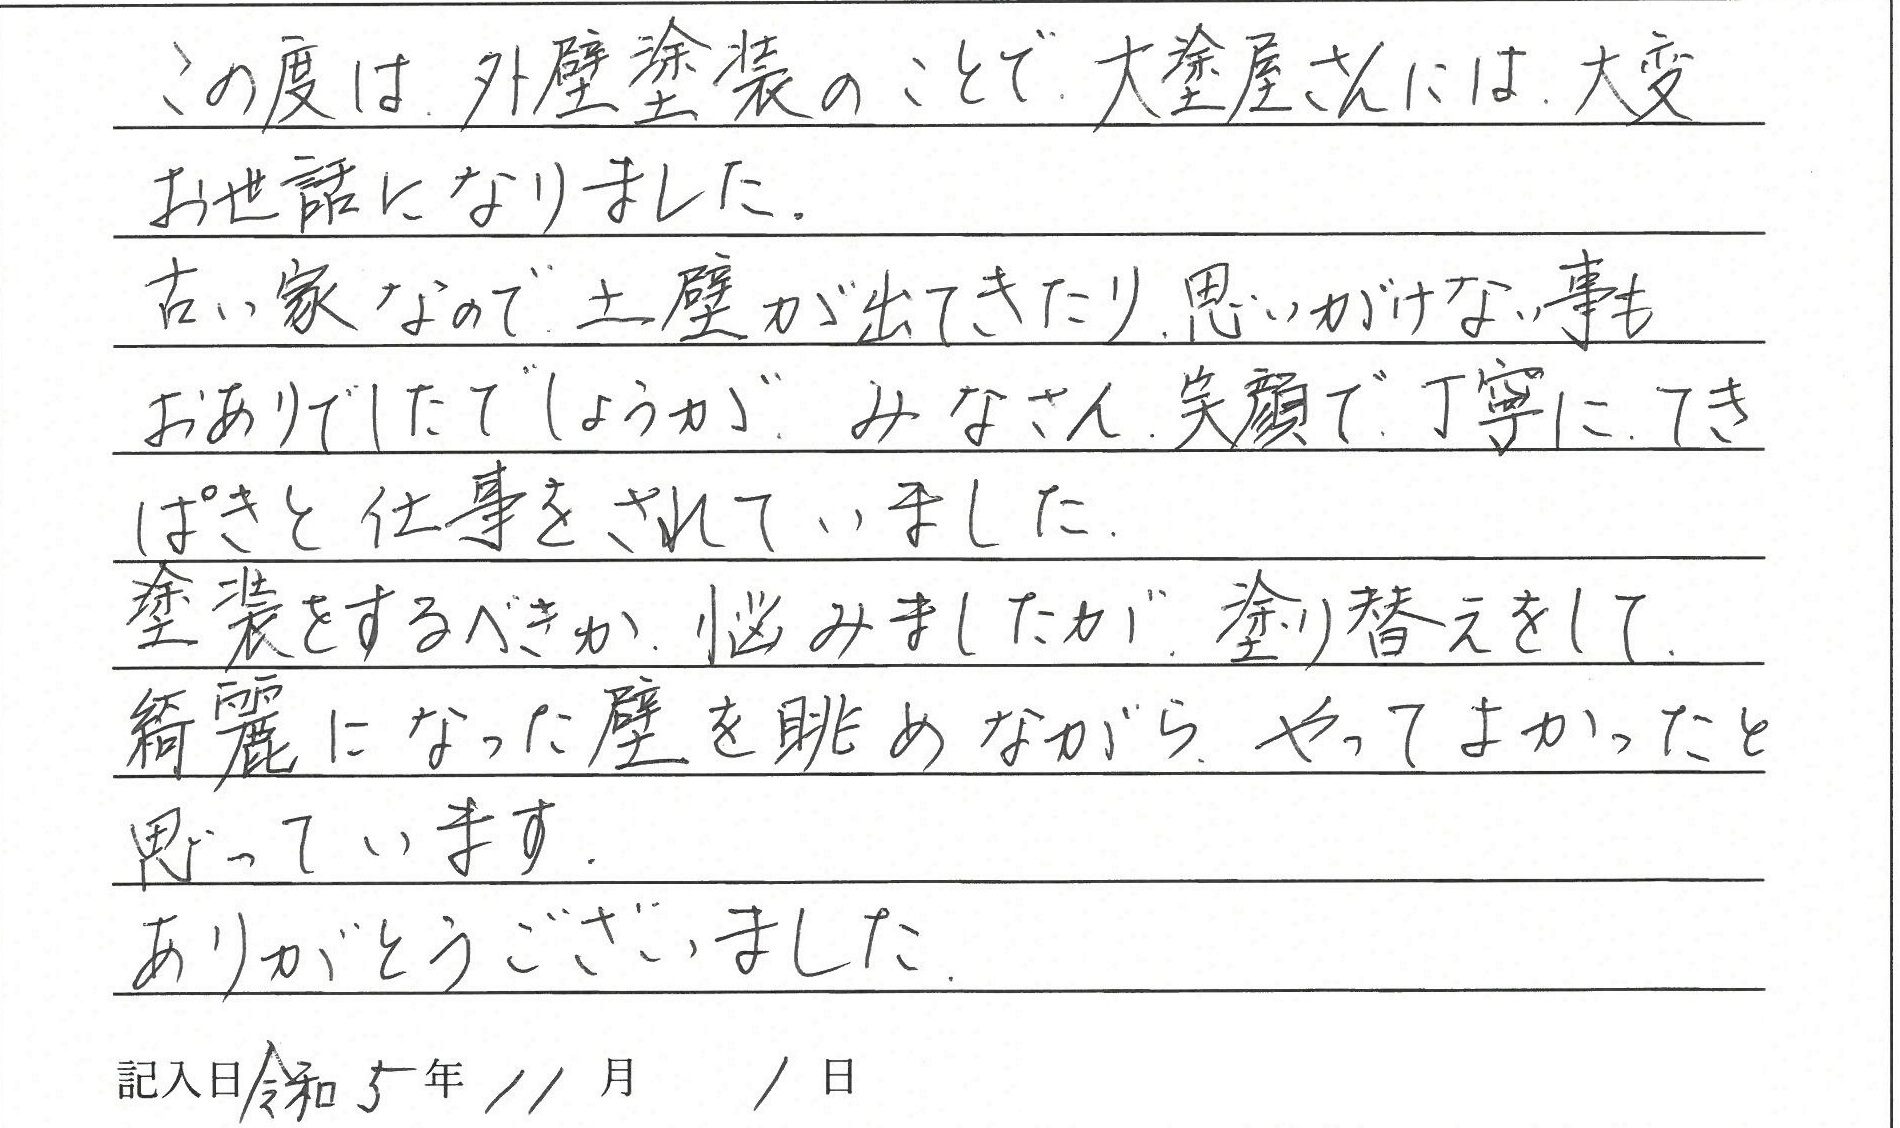 この度は、外壁塗装のことで、大塗屋さんには、大変
お世話になりました。
古い家なので、土壁が出てきたり、思いがけない事も
おありでしたでしょうが、みなさん、笑顔で、丁寧に、てき
ぱきと仕事をされていました。
塗装をするべきか、悩みましたが、塗り替えをして、
綺麗になった壁を眺めながら、やってよかったと
思っています。
ありがとうございました。
記入日 令和5年 11月 1日